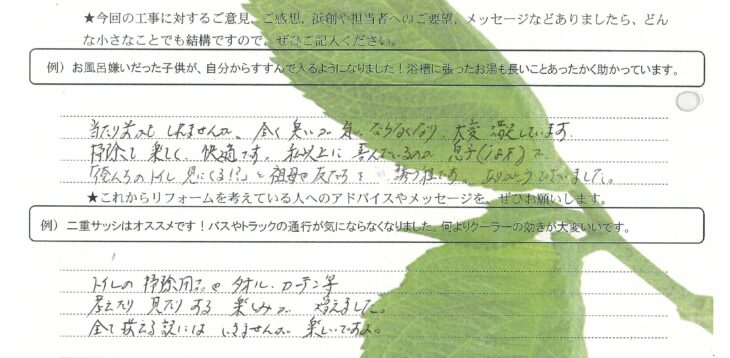 ★今回の工事に対するご意見、ご感想、浜創や担当者へのご要望、メッセージなどありましたら、どん
な小さなことでも結構ですので、ぜひご記入ください。
例）お風呂嫌いだった子供が、自分からすすんで入るようになりました！浴槽に張ったお湯も長いことあったかく助かっています。
当たり前かもしれませんが、全く臭いが気にならなくなり、大変満足しています。
掃除も楽しく、快適です。私以上に喜んでいるのが息子(1才)で、
「僕んちのトイレ見にくる!?」と祖母や友だちを誘う程です。ありがとうございました。
★これからリフォームを考えている人へのアドバイスやメッセージを、ぜひお願いします。
例）二重サッシはオススメです！バスやトラックの通行が気にならなくなりました。何よりクーラーの効きが大変いいです。
トイレの掃除用品やタオル、カーテン等
揃えたり見たりする楽しみが増えました。
全て揃える訳にはいきませんが楽しいですよ。